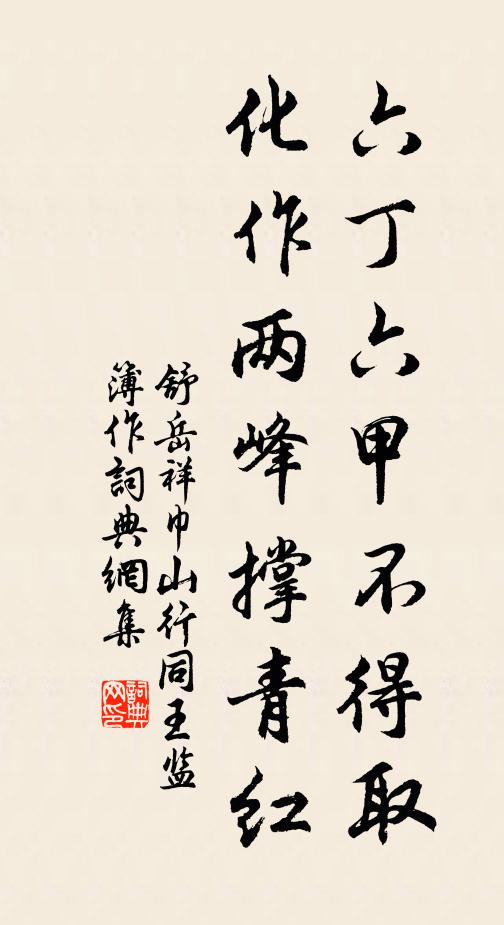 六丁六甲不得取
化作两峰撑青红
舒岳祥巾山行同王监
簿作詞典網集
詞典
网印